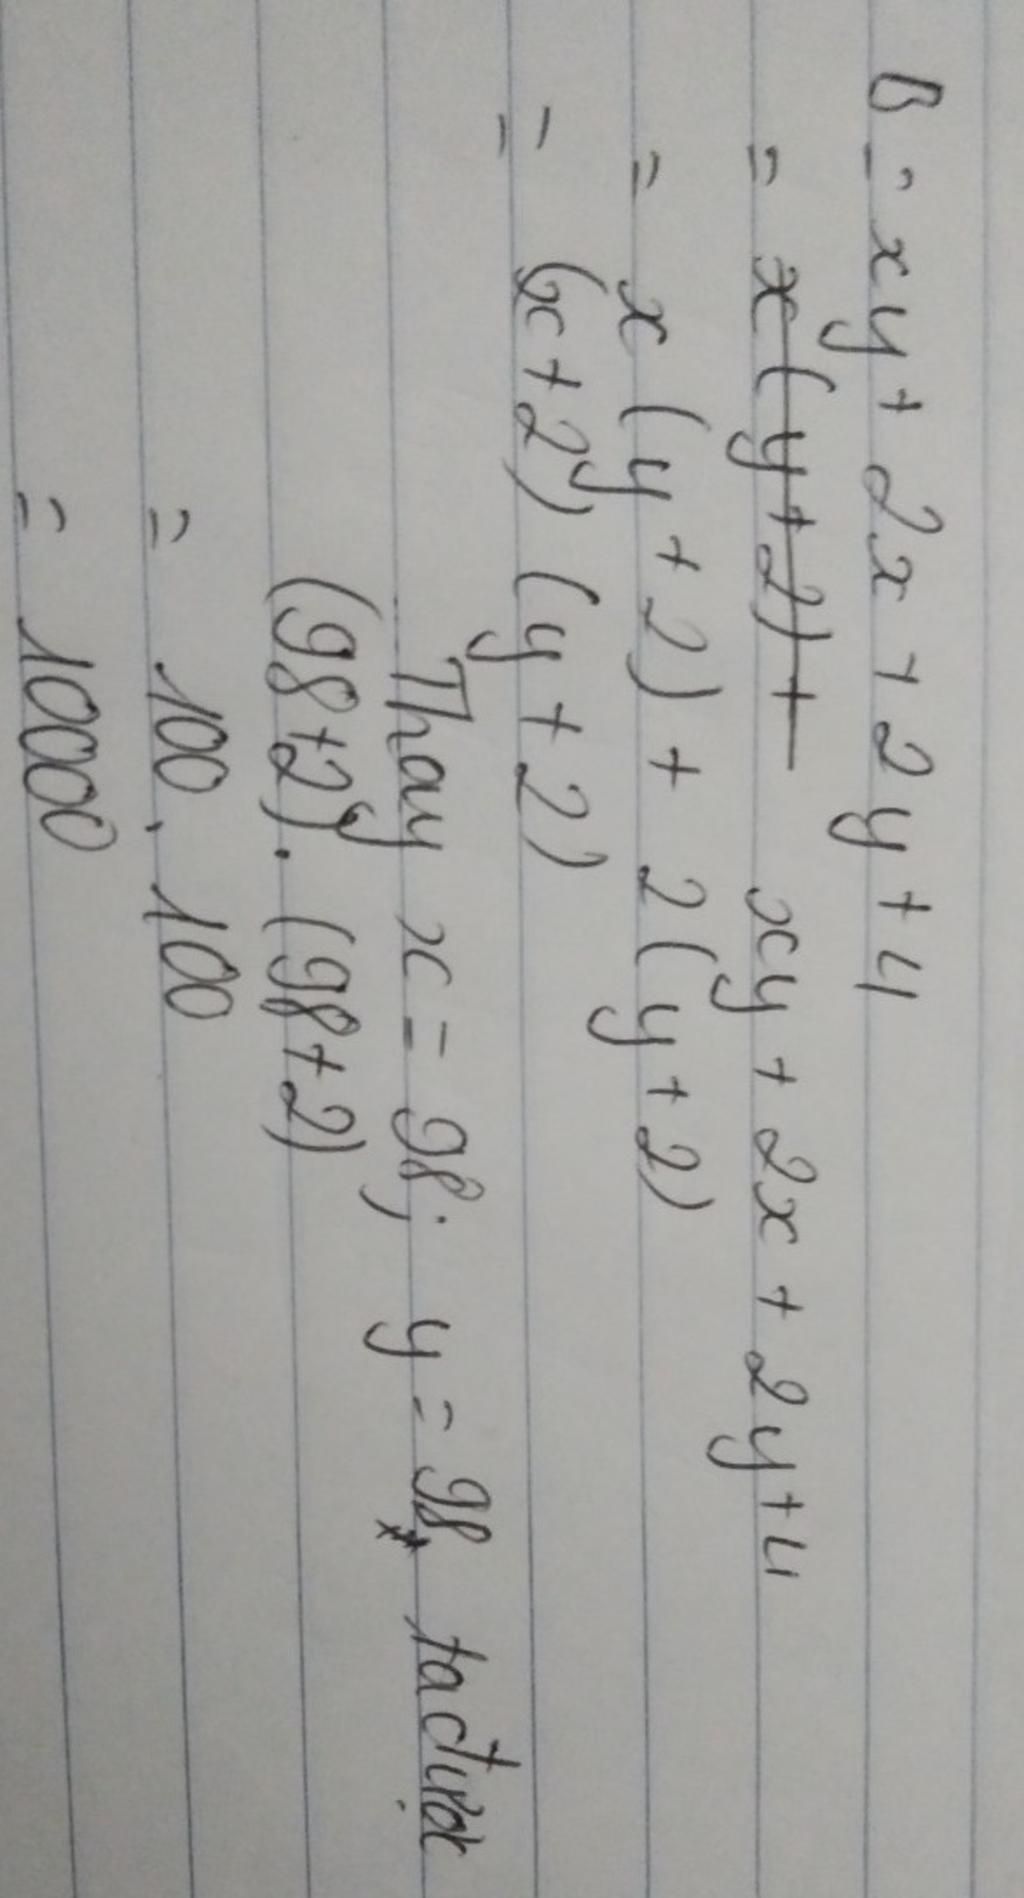 B = xy + 2x + 2y + 4
= x(y+2)+ xy + 2x + 2y + 4
= x (y + 2) + 2(y + 2)
= (x + 2) (y + 2)
Thay x = 98; y = 98, ta được
(98+2). (98+2)
= 100 . 100
= 10000